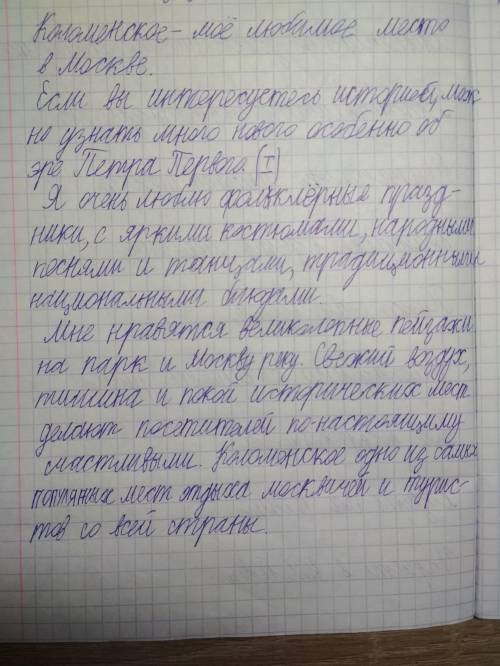 Коломенское - моё любимое место
в Москве.
Если вы интересуетесь историей, мож
но узнать много нового особенно об
эре Петра Первого. (I)
Я очень люблю фольклёрные празд-
ники, с яркими костюмами, народными
песнями и танцами, традиционными
национальными блюдами.
Мне нравятся великолепные пейзажи
на парк и Москву реку. Свежий воздух,
тишина и покой исторических мест
делают посетителей по-настоящиму
счастливыми. Коломенское одно из самых
популярных мест отдыха москвичей и турис-
тов со всей страны.